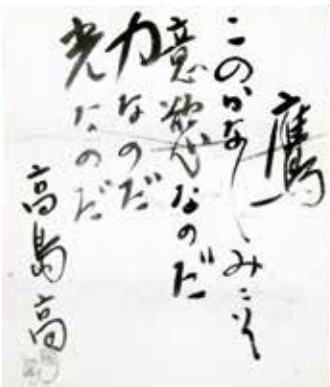 鷹
このかなしみこそ
意慾なのだ
力なのだ
光なのだ
高島高